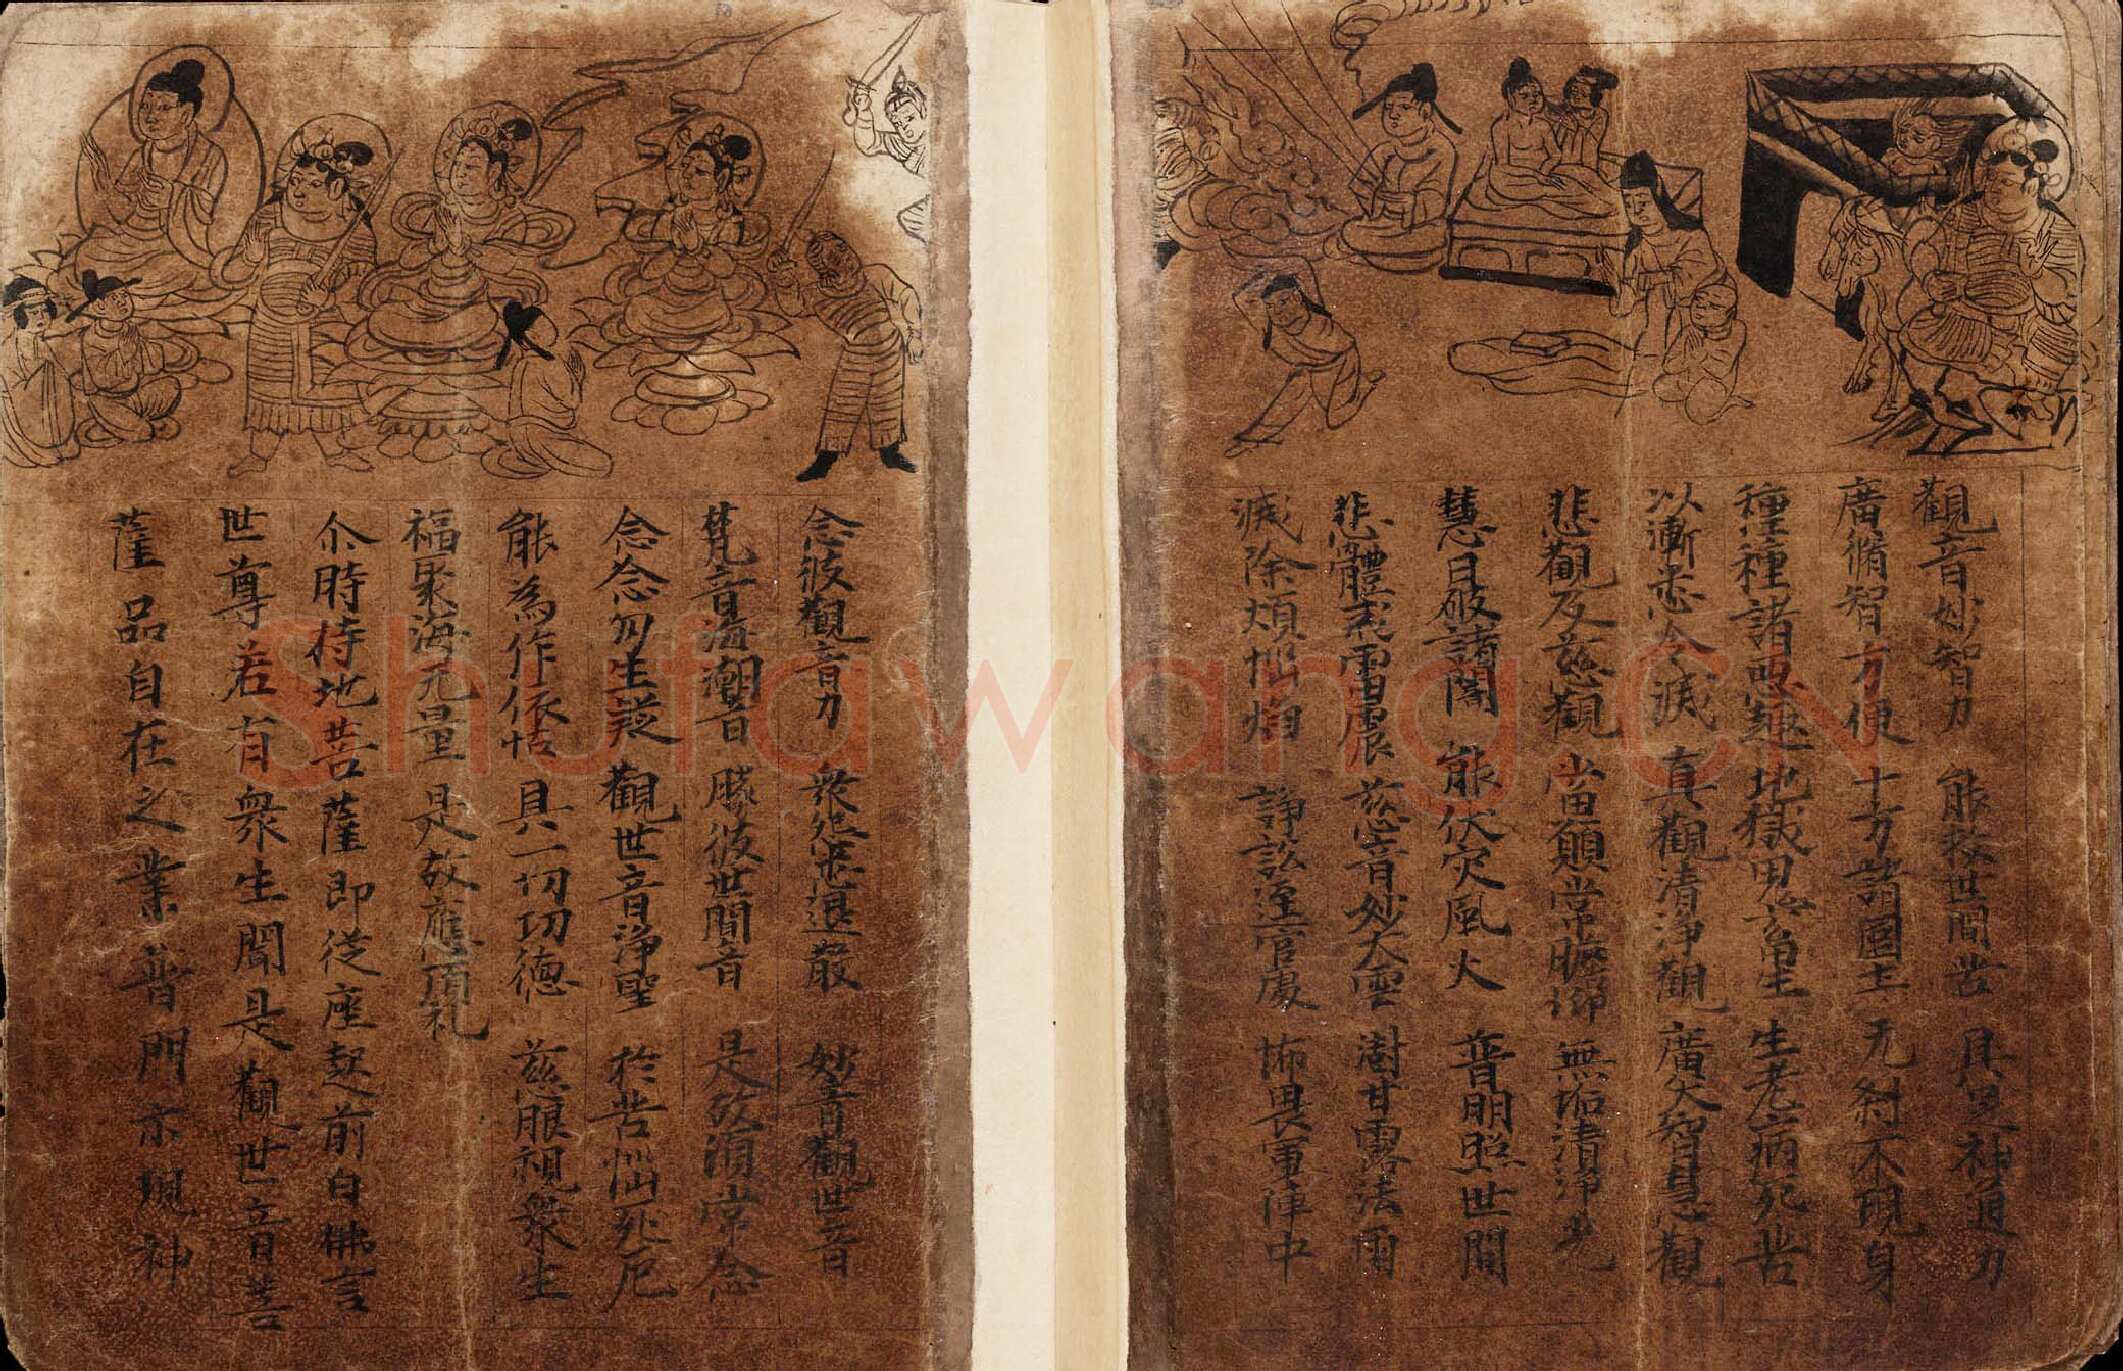 觀音妙智力　能救世間苦　具足神通力
廣脩智方便　十方諸國土　无刹不現身
種種諸惡趣　地獄鬼畜生　生老病死苦
以漸悉令滅　真觀清淨觀　廣大智慧觀
悲觀及慈觀　當願常瞻仰　無垢清淨光
慧日破諸闇　能伏灾風火　普明照世間
悲體戒雷震　慈音妙大雲　澍甘露法雨
滅除煩惱焰　諍訟逕官處　怖畏軍陣中
念彼觀音力　衆怨悉退散　妙音觀世音
梵音海潮音　勝彼世間音　是故須常念
念念勿生疑　觀世音淨聖　於苦惱死厄
能為作依怙　具一切功德　慈眼視衆生
福聚海无量　是故應頂礼
尒時持地菩薩即從座起前白佛言
世尊若有衆生聞是觀世音菩
薩品自在之業普門示現神
Shufawang.CN